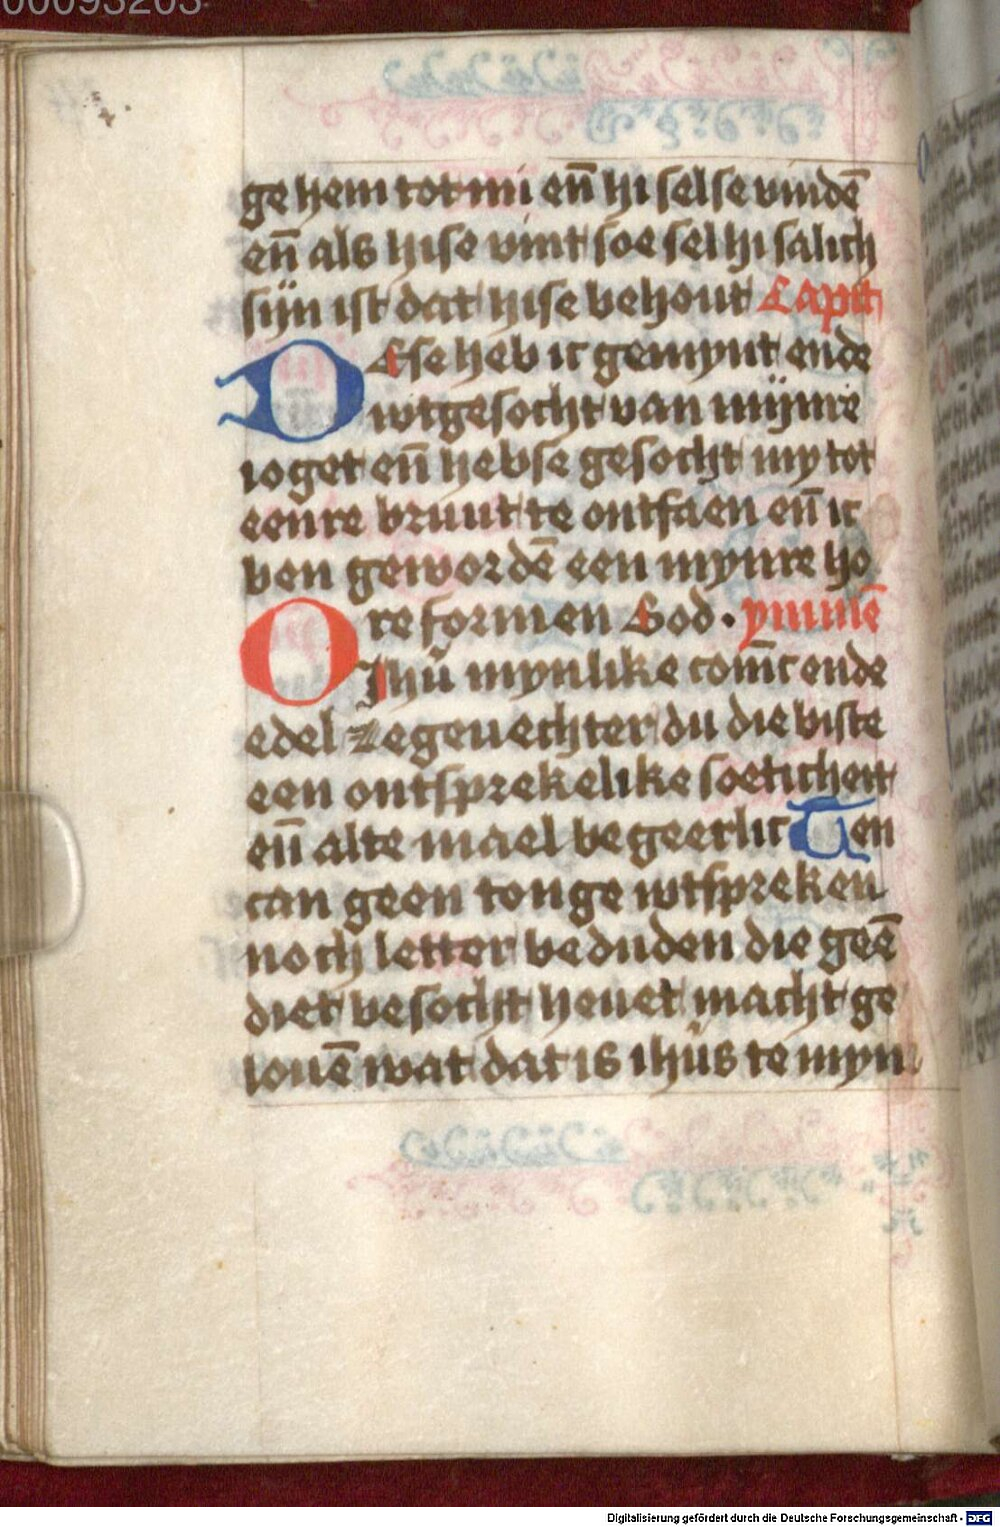 00093203
ge hem tot mi en̄ hi selse vindē
en̄ als hise vint soe sel hi salich
sijn ist dat hise behout Capit
Dese heb ic gemynt ende
wtgesocht van mijnre
ioget en̄ hebse gesocht my tot
eenre bruut te ontfaen en̄ ic
ben gewordē een mynre ho
re formen God · ymmē
O Ihū mynlike com̄c ende
edel zegevechter du die biste
een ontsprekelike soeticheit
en̄ alte mael begeerlic Ten
can geen tonge wtspreken
noch letter beduden die geē
diet besocht hevet macht ge
louē wat dat is ihūs te myn
Digitalisierung gefördert durch die Deutsche Forschungsgemeinschaft - DFG